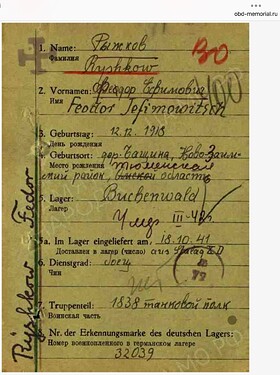 obd-memorial.ru
Рыжков
1. Name:
Фамилия
Ryshkow
ВО
2. Vornamen: Феодор Ефимович
Имя
Feodor Jefimowitsch
3. Geburtstag: 12.12.1913
День рождения
4. Geburtsort: дер. Ново-Заим-
Место рождения Тюменской
ский район, Омской область
5. Lager: Buchenwald
Лагерь
Умер III-42г.
5a. Im Lager eingeliefert am 18.10.41
Доставлен в лагерь (число)
6. Dienstgrad: боец
Чин
7. Truppenteil: 1838 танковой полк
Воинская часть
8. Nr. der Erkennungsmarke des deutschen Lagers:
Номер военнопленного в германском лагере
32039
Ryshkow Fedor